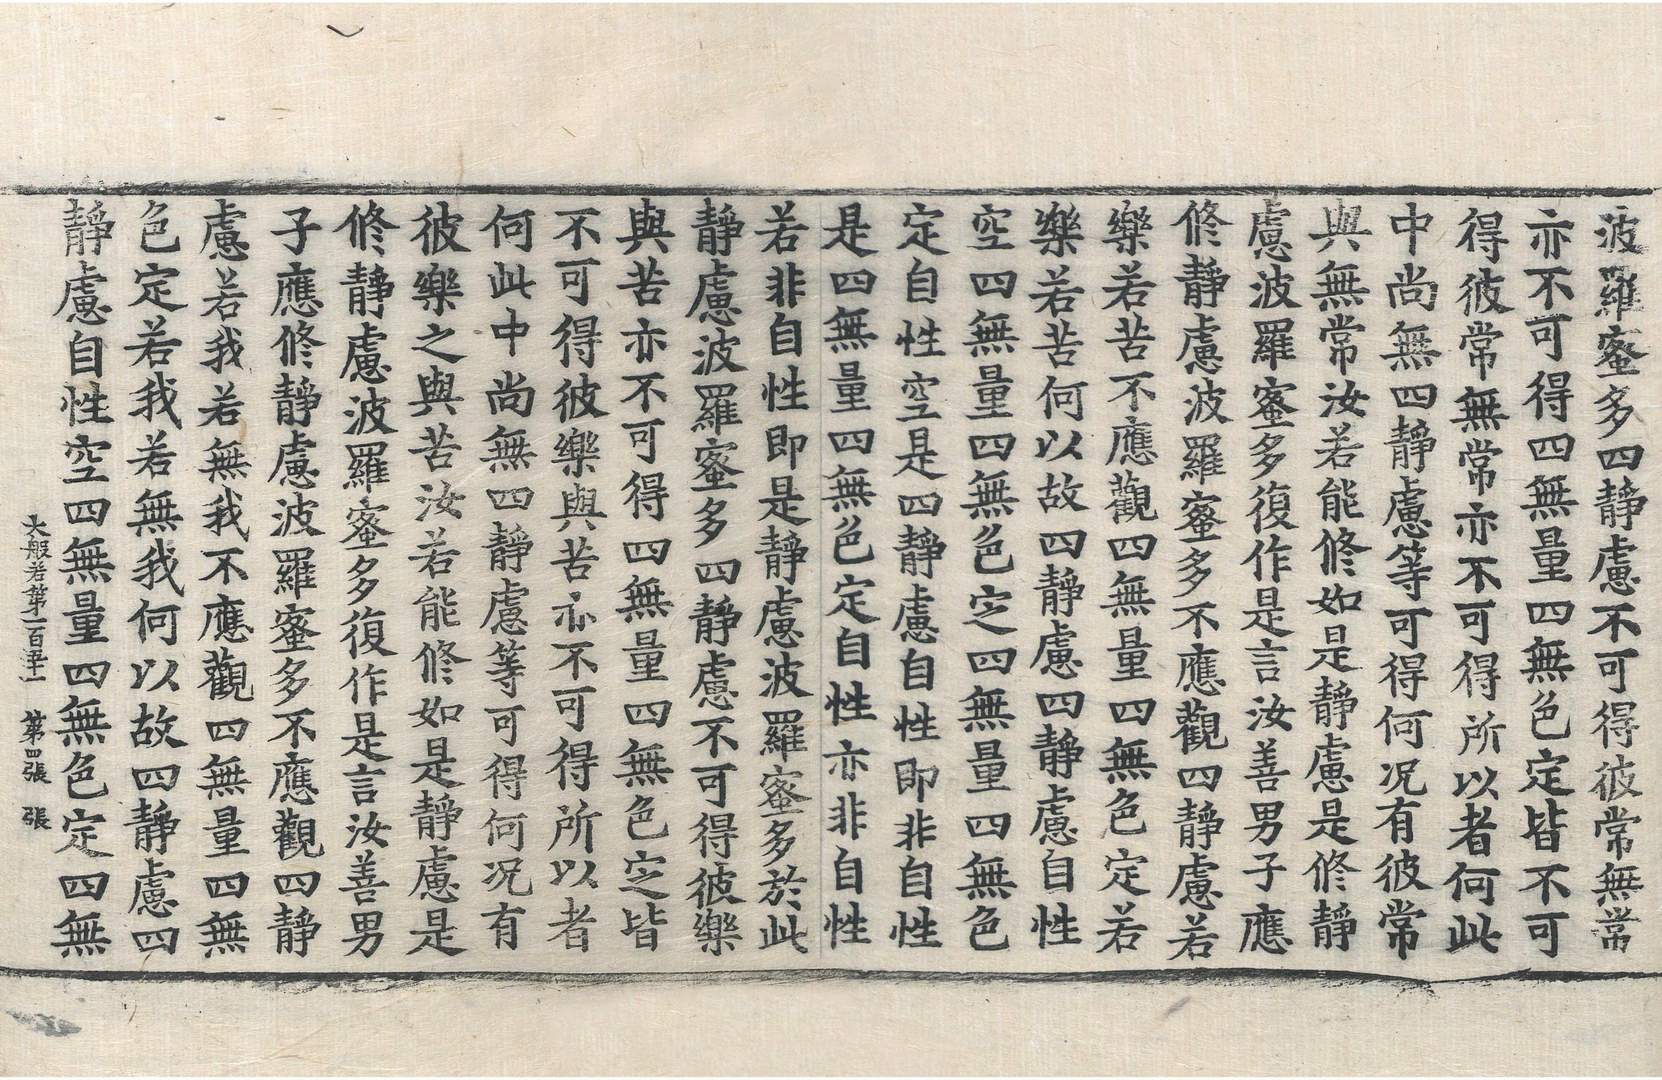 波羅蜜多四靜慮不可得彼常無常
亦不可得四無量四無色定皆不可
得彼常無常亦不可得所以者何此
中尚無四靜慮等可得何況有彼常
與無常汝若能修如是靜慮是修靜
慮波羅蜜多復作是言汝善男子應
修靜慮波羅蜜多不應觀四靜慮若
樂若苦不應觀四無量四無色定若
樂若苦何以故四靜慮四靜慮自性
空四無量四無色定四無量四無色
定自性空是四靜慮自性即非自性
是四無量四無色定自性亦非自性
若非自性即是靜慮波羅蜜多於此
靜慮波羅蜜多四靜慮不可得彼樂
與苦亦不可得四無量四無色定皆
不可得彼樂與苦亦不可得所以者
何此中尚無四靜慮等可得何況有
彼樂之與苦汝若能修如是靜慮是
修靜慮波羅蜜多復作是言汝善男
子應修靜慮波羅蜜多不應觀四靜
慮若我若無我不應觀四無量四無
色定若我若無我何以故四靜慮四
靜慮自性空四無量四無色定四無
大般若第一百五十一 第四張 張